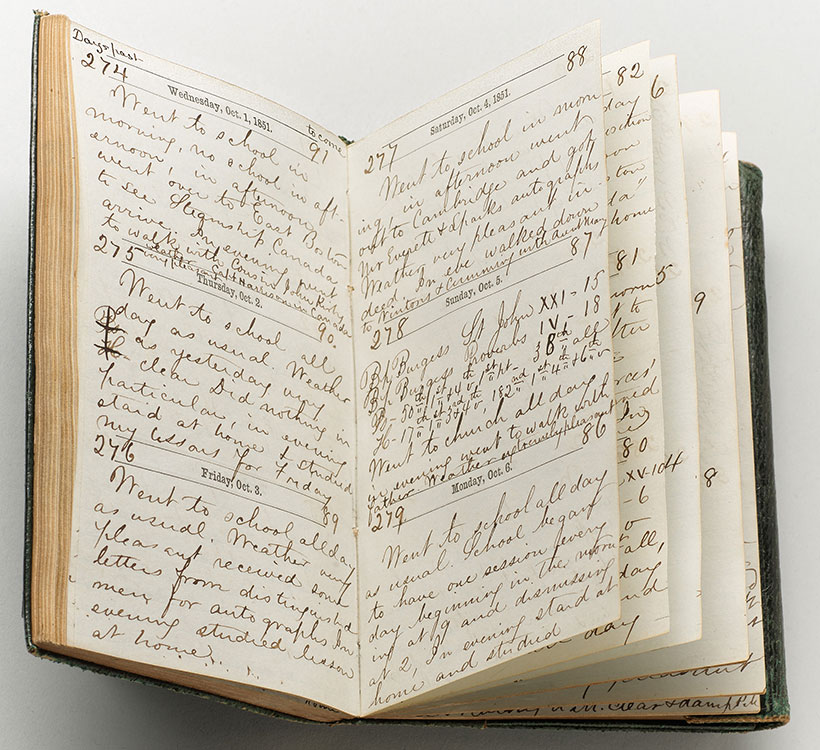 Days past
274
Wednesday, Oct. 1, 1851.
to come
91
Went to school in
morning, no school in aft-
ernoon, in afternoon
went over to East Boston
to see Steamship Canada
arrive. In evening went
to walk with Cousin John Kirby
275
Thursday, Oct. 2.
90
Went to school all
day as usual. Weather
as yesterday very
clear Did nothing in
particular, in evening
staid at home & studied
my lessons for Friday
276
Friday, Oct. 3.
89
Went to school all day
as usual. Weather very
pleasant received some
letters from distinguished
men for autographs In
evening studied lesson
at home
88
Saturday, Oct. 4, 1851.
277
Went to school in morn
ing, in afternoon went
out to Cambridge and got
Mr Everett & Sparks autographs
Weather very pleasant in-
deed. In eve walked down
to Wintons & Cumming with Aunt Mary home
87
Sunday, Oct. 5.
278
Bp. Burgess St John XXI - 15
Bp. Burgess Proverbs IV - 18
Went to church all day
in evening went to walk with
father Weather extremely pleasant
86
Monday, Oct. 6.
279
Went to school all day
as usual. School began
to have one session every
day beginning in the morn
ing at 9 and dismissing
at 2, In evening staid at
home and studied
82
day
81
to
80
XV-104
- 6
all,
day,
day
6
5
9
8